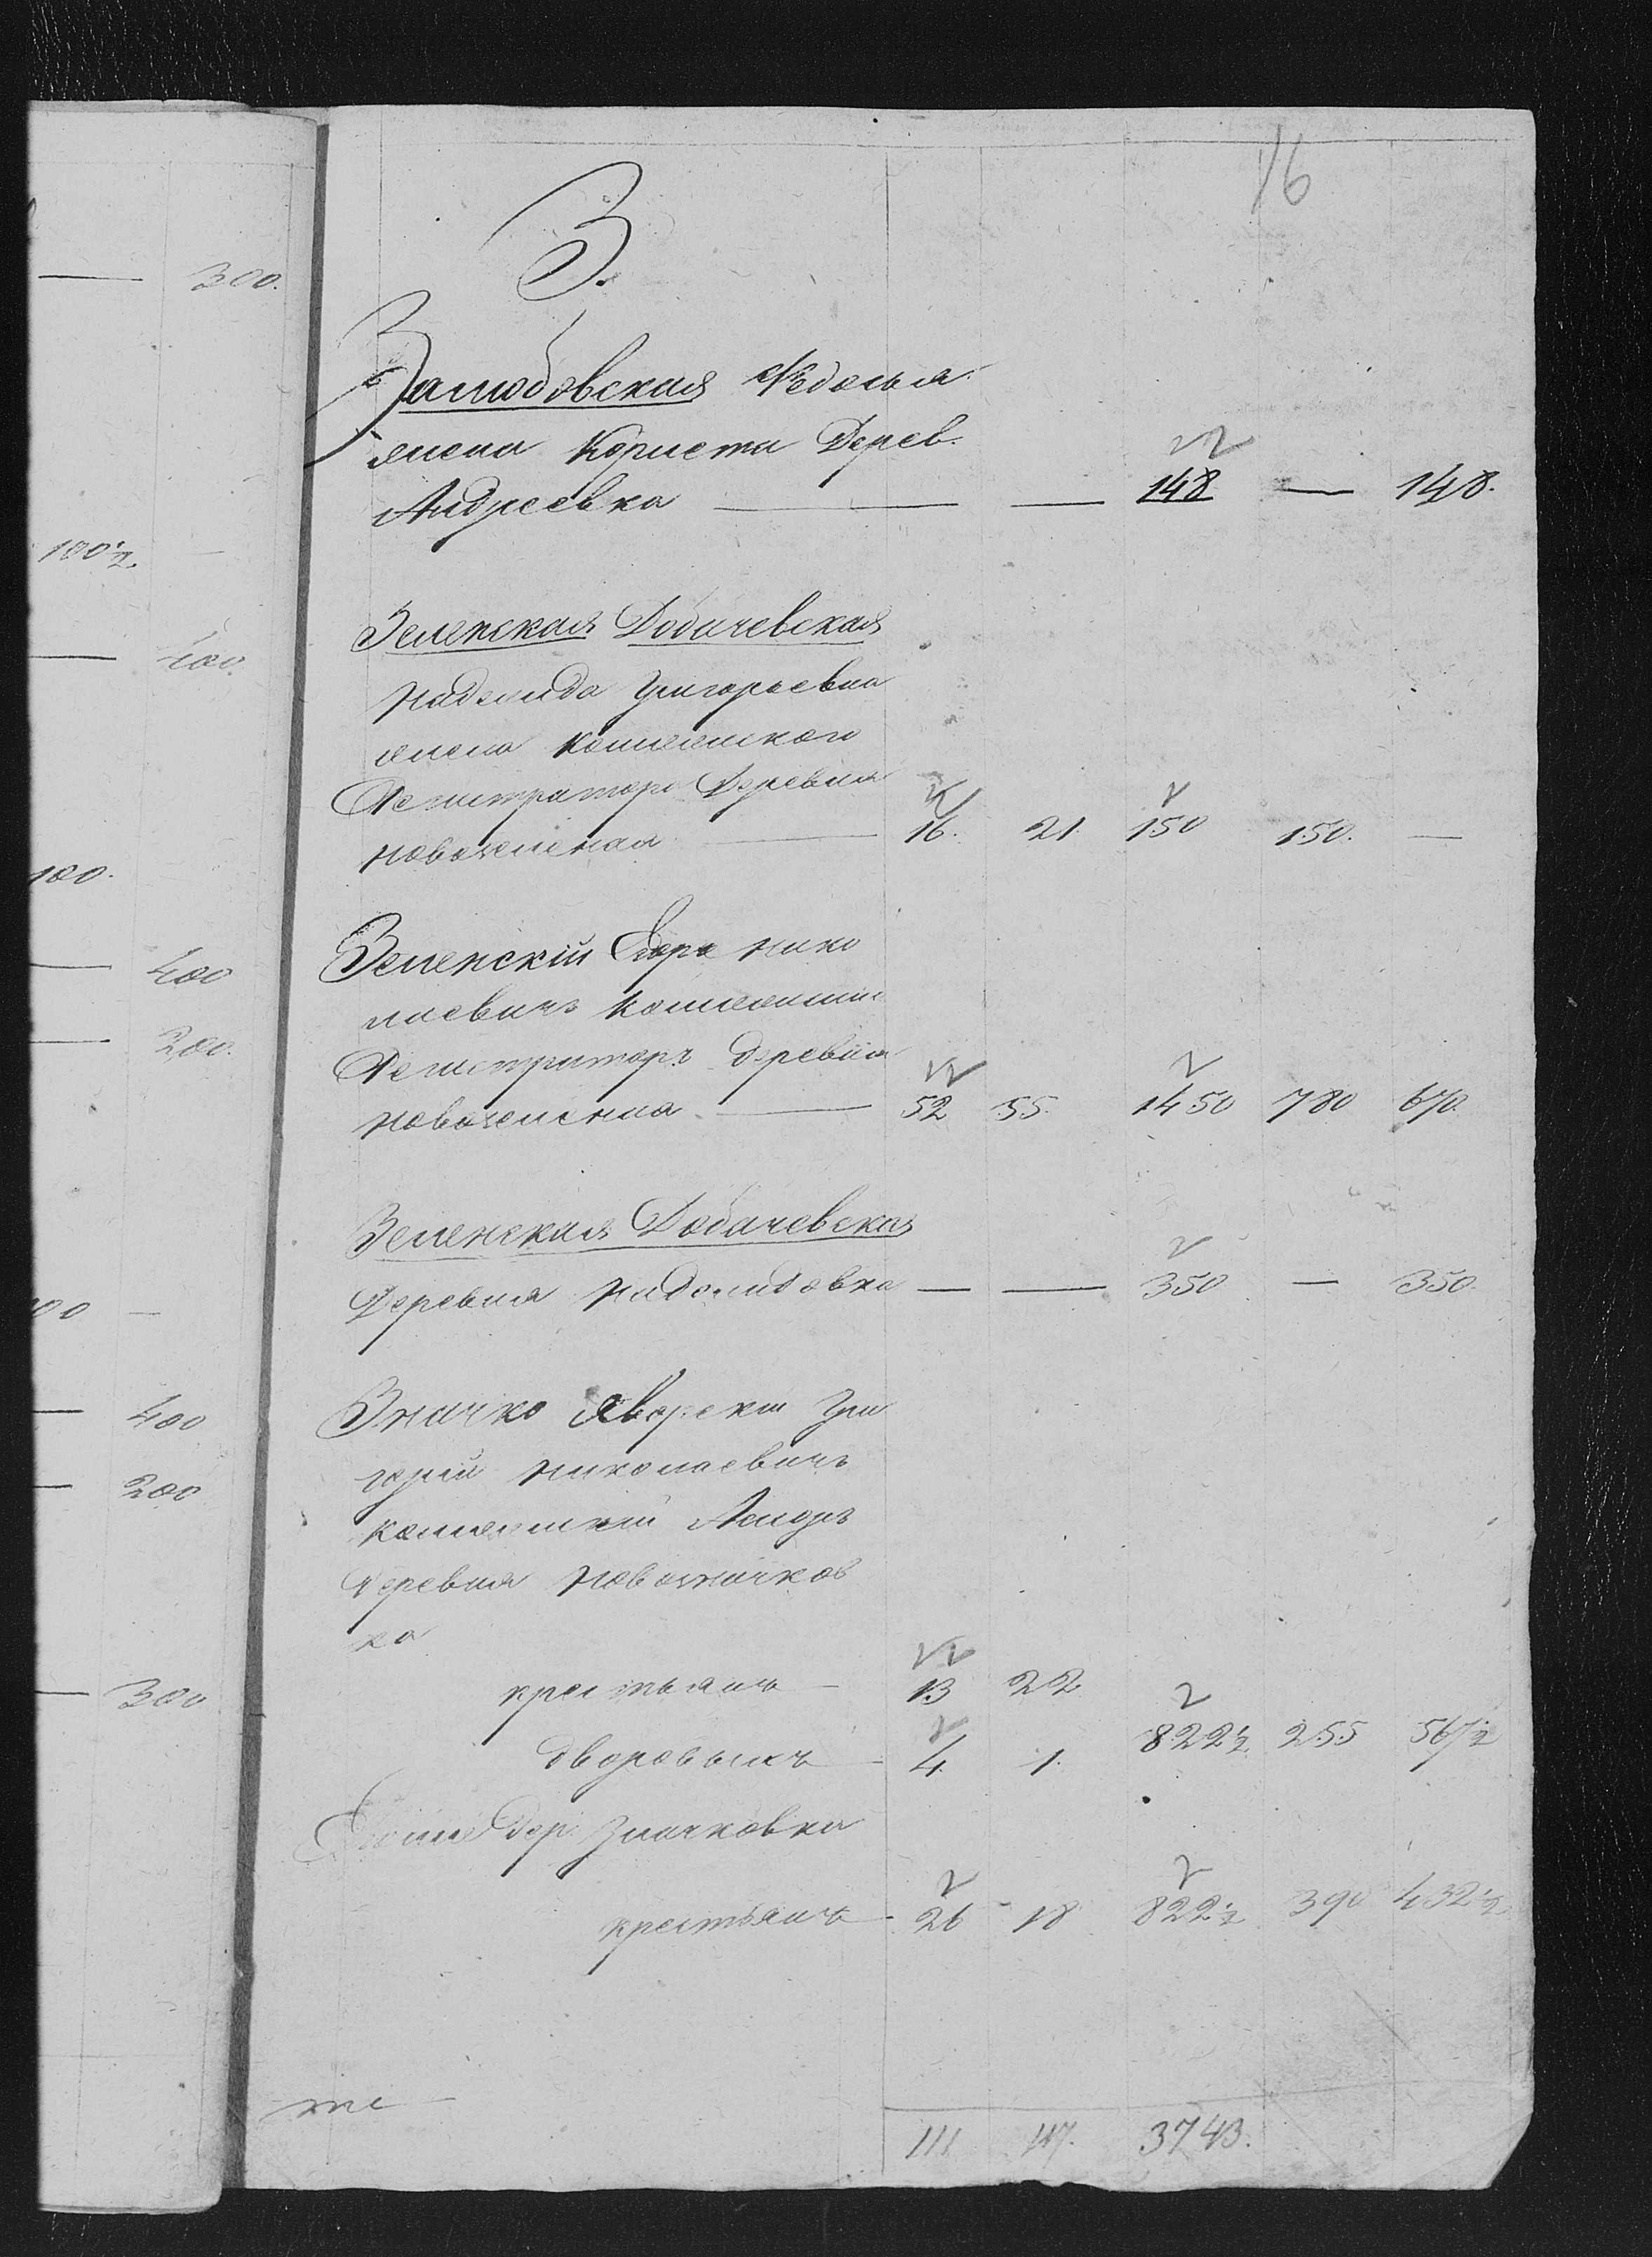 300.
100½.
400.
100.
400
200.
00 —
400
200
300
16
З.
Залюбовская Федосья
жена Корнета Дерев.
Андреевка — — 148 — 148.
Зеленская Добачевская
Надежда Григорьевна
жена Коллежского
Регистратора Деревня
Новозелена 16. 21. 150 150. —
Зеленскій Егоръ Нико
лаевичъ Коллежскій
Регистраторъ деревня
Новозеленна — 52 55. 1450 780 670.
Зеленская Добачевская
Деревня Надеждовка — — 350 — 350.
Значко Яворскій Гри
горій Николаевичъ
Коллежскій Асесоръ
Деревня Новозначков
ка
крестьянъ — 13 22
дворовыхъ — 4. 1. 822½ 255 567½
дер. Значковка
крестьянъ — 26 18 822½ 390 432½
111 117. 3743.